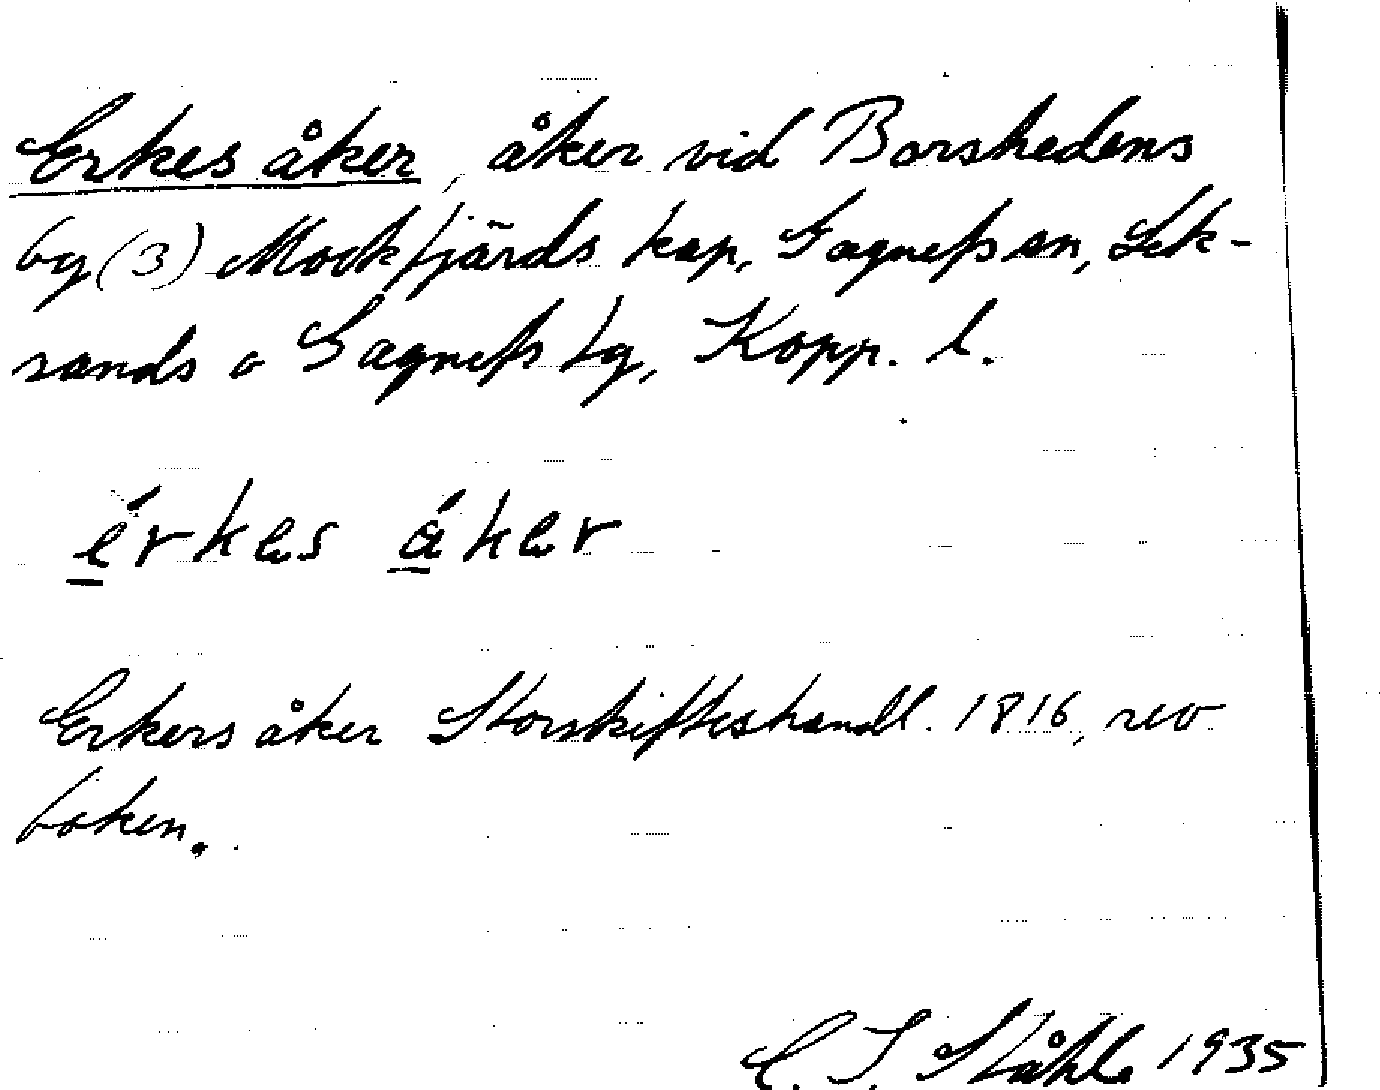 Erkes åker, åker vid Borshedens
by (3) Mockfjärds kap, Gagnefs sn, Lek-
sands o Gagnefs tg, Kopp. l.
érkes åker
Erkers åker Storskifteshandl. 1816, rev
boken.
C. I. Ståhle 1935